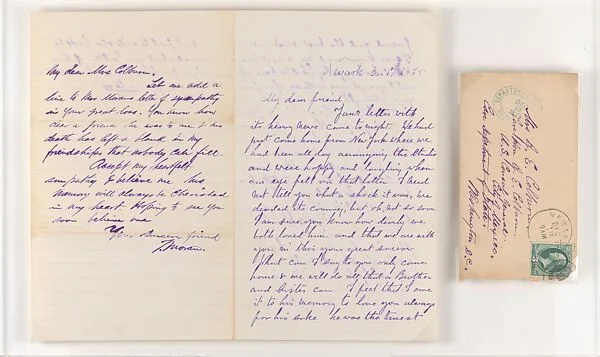 My dear Mrs Colburn.
Let me add a
line to Mrs Morans letter of sympathy
in your great loss. You know how
dear a friend he was to me & his
death has left a blank in my
friendships that nobody can fill.
Accept my heartfelt
sympathy & believe me his
memory will always be cherished
in my heart Hoping to see you
soon believe me
Your Sincere friend
T Moran.
Newark
My dear friend
Your letter with
its heavy news came to night. We had
just come home from New York where we
had been all day arranging the Studio
and were happy and laughing when
our eye fell on that letter. I need
not tell you what a shock it was, we
dreaded its coming, but oh, not so soon
I am sure you know how dearly we
both loved him and that we are with
you in this your great sorrow
What can I say to you only come
home & we will do all that a Brother
and Sister can I feel that I owe
it to his memory to love you always
for his sake he was the truest
DEPARTMENT
Mrs J. E. Colburn
J. E. Colburn
U.S. Consul
City of Mexico.
Care Department of State.
Washington D.C.